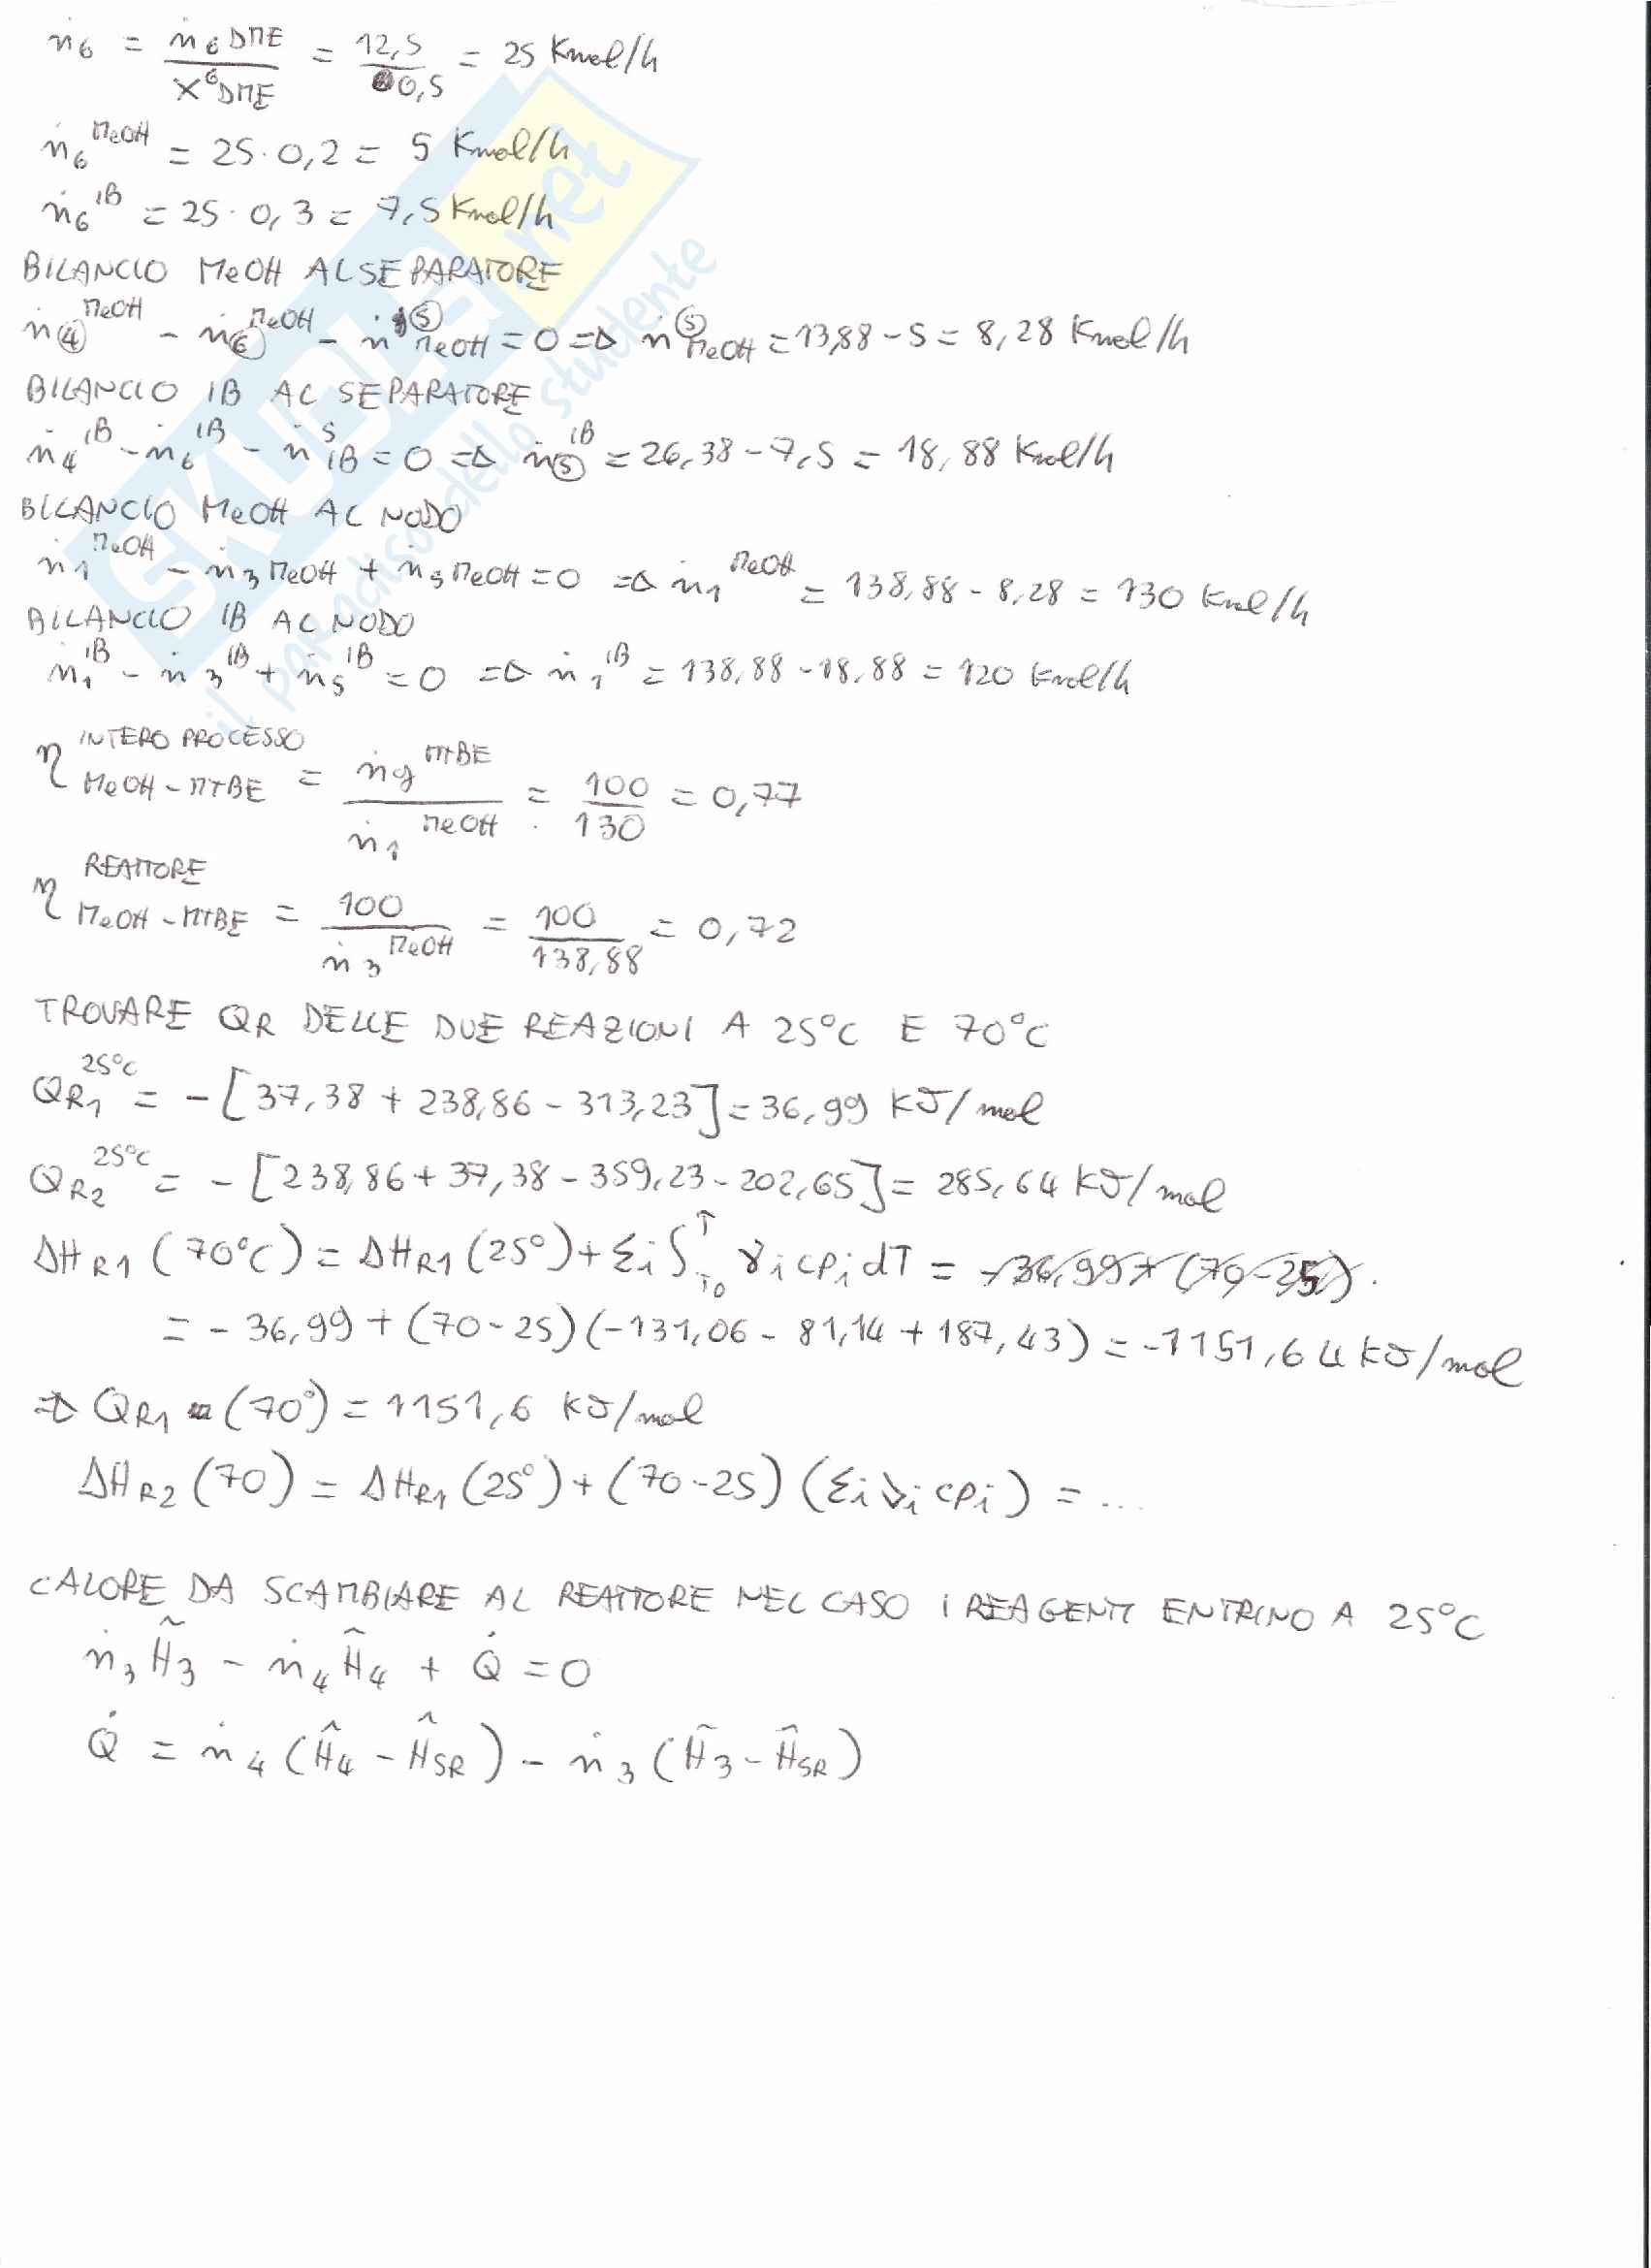 ṅ6 = ṅ6 DME / X⁶DME = 12,5 / 0,5 = 25 Kmol/h
ṅ6^MeOH = 25·0,2 = 5 Kmol/h
ṅ6^IB = 25·0,3 = 7,5 Kmol/h
BILANCIO MeOH AL SEPARATORE
ṅ④^MeOH - ṅ⑥^MeOH - ṅ^⑤MeOH = 0 => ṅ^⑤MeOH = 13,88 - 5 = 8,28 Kmol/h
BILANCIO IB AL SEPARATORE
ṅ4^IB - ṅ6^IB - ṅ^5IB = 0 => ṅ⑤^IB = 26,38 - 7,5 = 18,88 Kmol/h
BILANCIO MeOH AL NODO
ṅ1^MeOH - ṅ3 MeOH + ṅ5 MeOH = 0 => ṅ1^MeOH = 138,88 - 8,28 = 130 Kmol/h
BILANCIO IB AL NODO
ṅ1^IB - ṅ3^IB + ṅ5^IB = 0 => ṅ1^IB = 138,88 - 18,88 = 120 Kmol/h
η^INTERO PROCESSO MeOH-MTBE = ṅ9^MTBE / ṅ1^MeOH = 100 / 130 = 0,77
η^REATTORE MeOH-MTBE = 100 / ṅ3^MeOH = 100 / 138,88 = 0,72
TROVARE QR DELLE DUE REAZIONI A 25°C E 70°C
QR1^25°C = -[37,38 + 238,86 - 313,23] = 36,99 KJ/mol
QR2^25°C = -[238,86 + 37,38 - 359,23 - 202,65] = 285,64 KJ/mol
ΔHR1 (70°C) = ΔHR1 (25°) + Σi ∫T0^T γi cpi dT = -36,99 + (70-25).
= -36,99 + (70-25)(-131,06 - 81,14 + 187,43) = -1151,64 KJ/mol
=> QR1 (70°) = 1151,6 KJ/mol
ΔHR2 (70) = ΔHR1 (25°) + (70-25) (Σi νi cpi) = ...
CALORE DA SCAMBIARE AL REATTORE NEL CASO I REAGENTI ENTRINO A 25°C
ṅ3 Ĥ3 - ṅ4 Ĥ4 + Q̇ = 0
Q̇ = ṅ4 (Ĥ4 - ĤSR) - ṅ3 (Ĥ3 - ĤSR)
SKUOLA.net
il paradiso dello studente